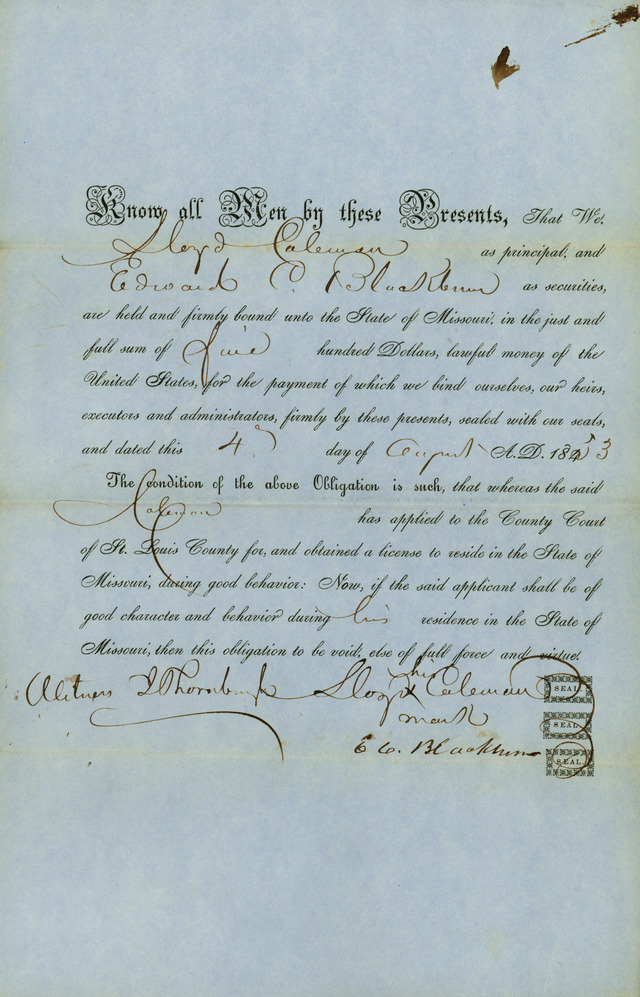 Know all Men by these Presents, That We,
Lloyd Coleman as principal, and
Edward C. Blackburn as securities,
are held and firmly bound unto the State of Missouri, in the just and
full sum of five hundred Dollars, lawful money of the
United States, for the payment of which we bind ourselves, our heirs,
executors and administrators, firmly by these presents, sealed with our seals,
and dated this 4 day of August A. D. 1853
The condition of the above Obligation is such, that whereas the said
Coleman has applied to the County Court
of St. Louis County for, and obtained a license to reside in the State of
Missouri, during good behavior: Now, if the said applicant shall be of
good character and behavior during his residence in the State of
Missouri, then this obligation to be void, else of full force and virtue.
his
Witness Lloyd X Coleman SEAL.
mark SEAL.
E C. Blackburn SEAL.